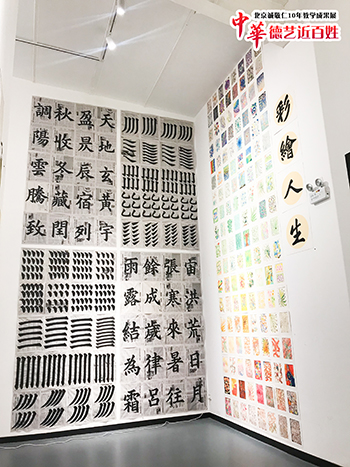 北京诚敬仁10年教学成果展
中華德艺近百姓
天地玄黃宇
盈昃辰宿列
秋收冬藏閏
調陽雲騰致
宙洪荒日月
張寒來暑往
餘成歲律呂
雨露結為霜
彩繪人生